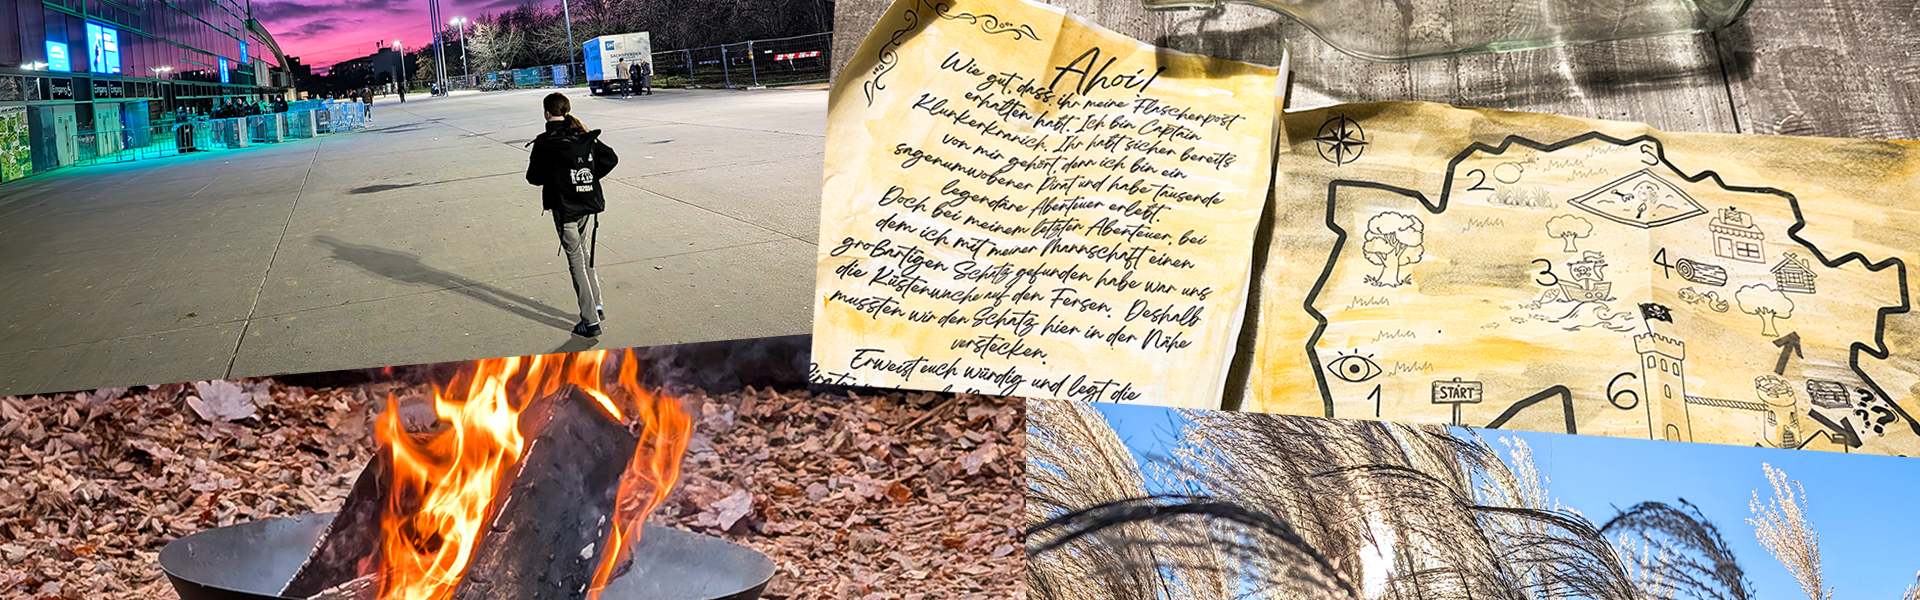 Eingang
Eingang
SACHSPENDEN
Ahoi!
Wie gut, dass ihr meine Flaschenpost
erhalten habt. Ich bin Captain
Klunkerkranich. Ihr habt sicher bereits
von mir gehört, denn ich bin ein
sagenumwobener Pirat und habe tausende
legendäre Abenteuer erlebt.
Doch bei meinem letzten Abenteuer, bei
dem ich mit meiner Mannschaft einen
großartigen Schatz gefunden habe war uns
die Küstenwache auf den Fersen. Deshalb
mussten wir den Schatz hier in der Nähe
verstecken.
Erweist euch würdig und legt die
5
2
3
4
1
START
6
???